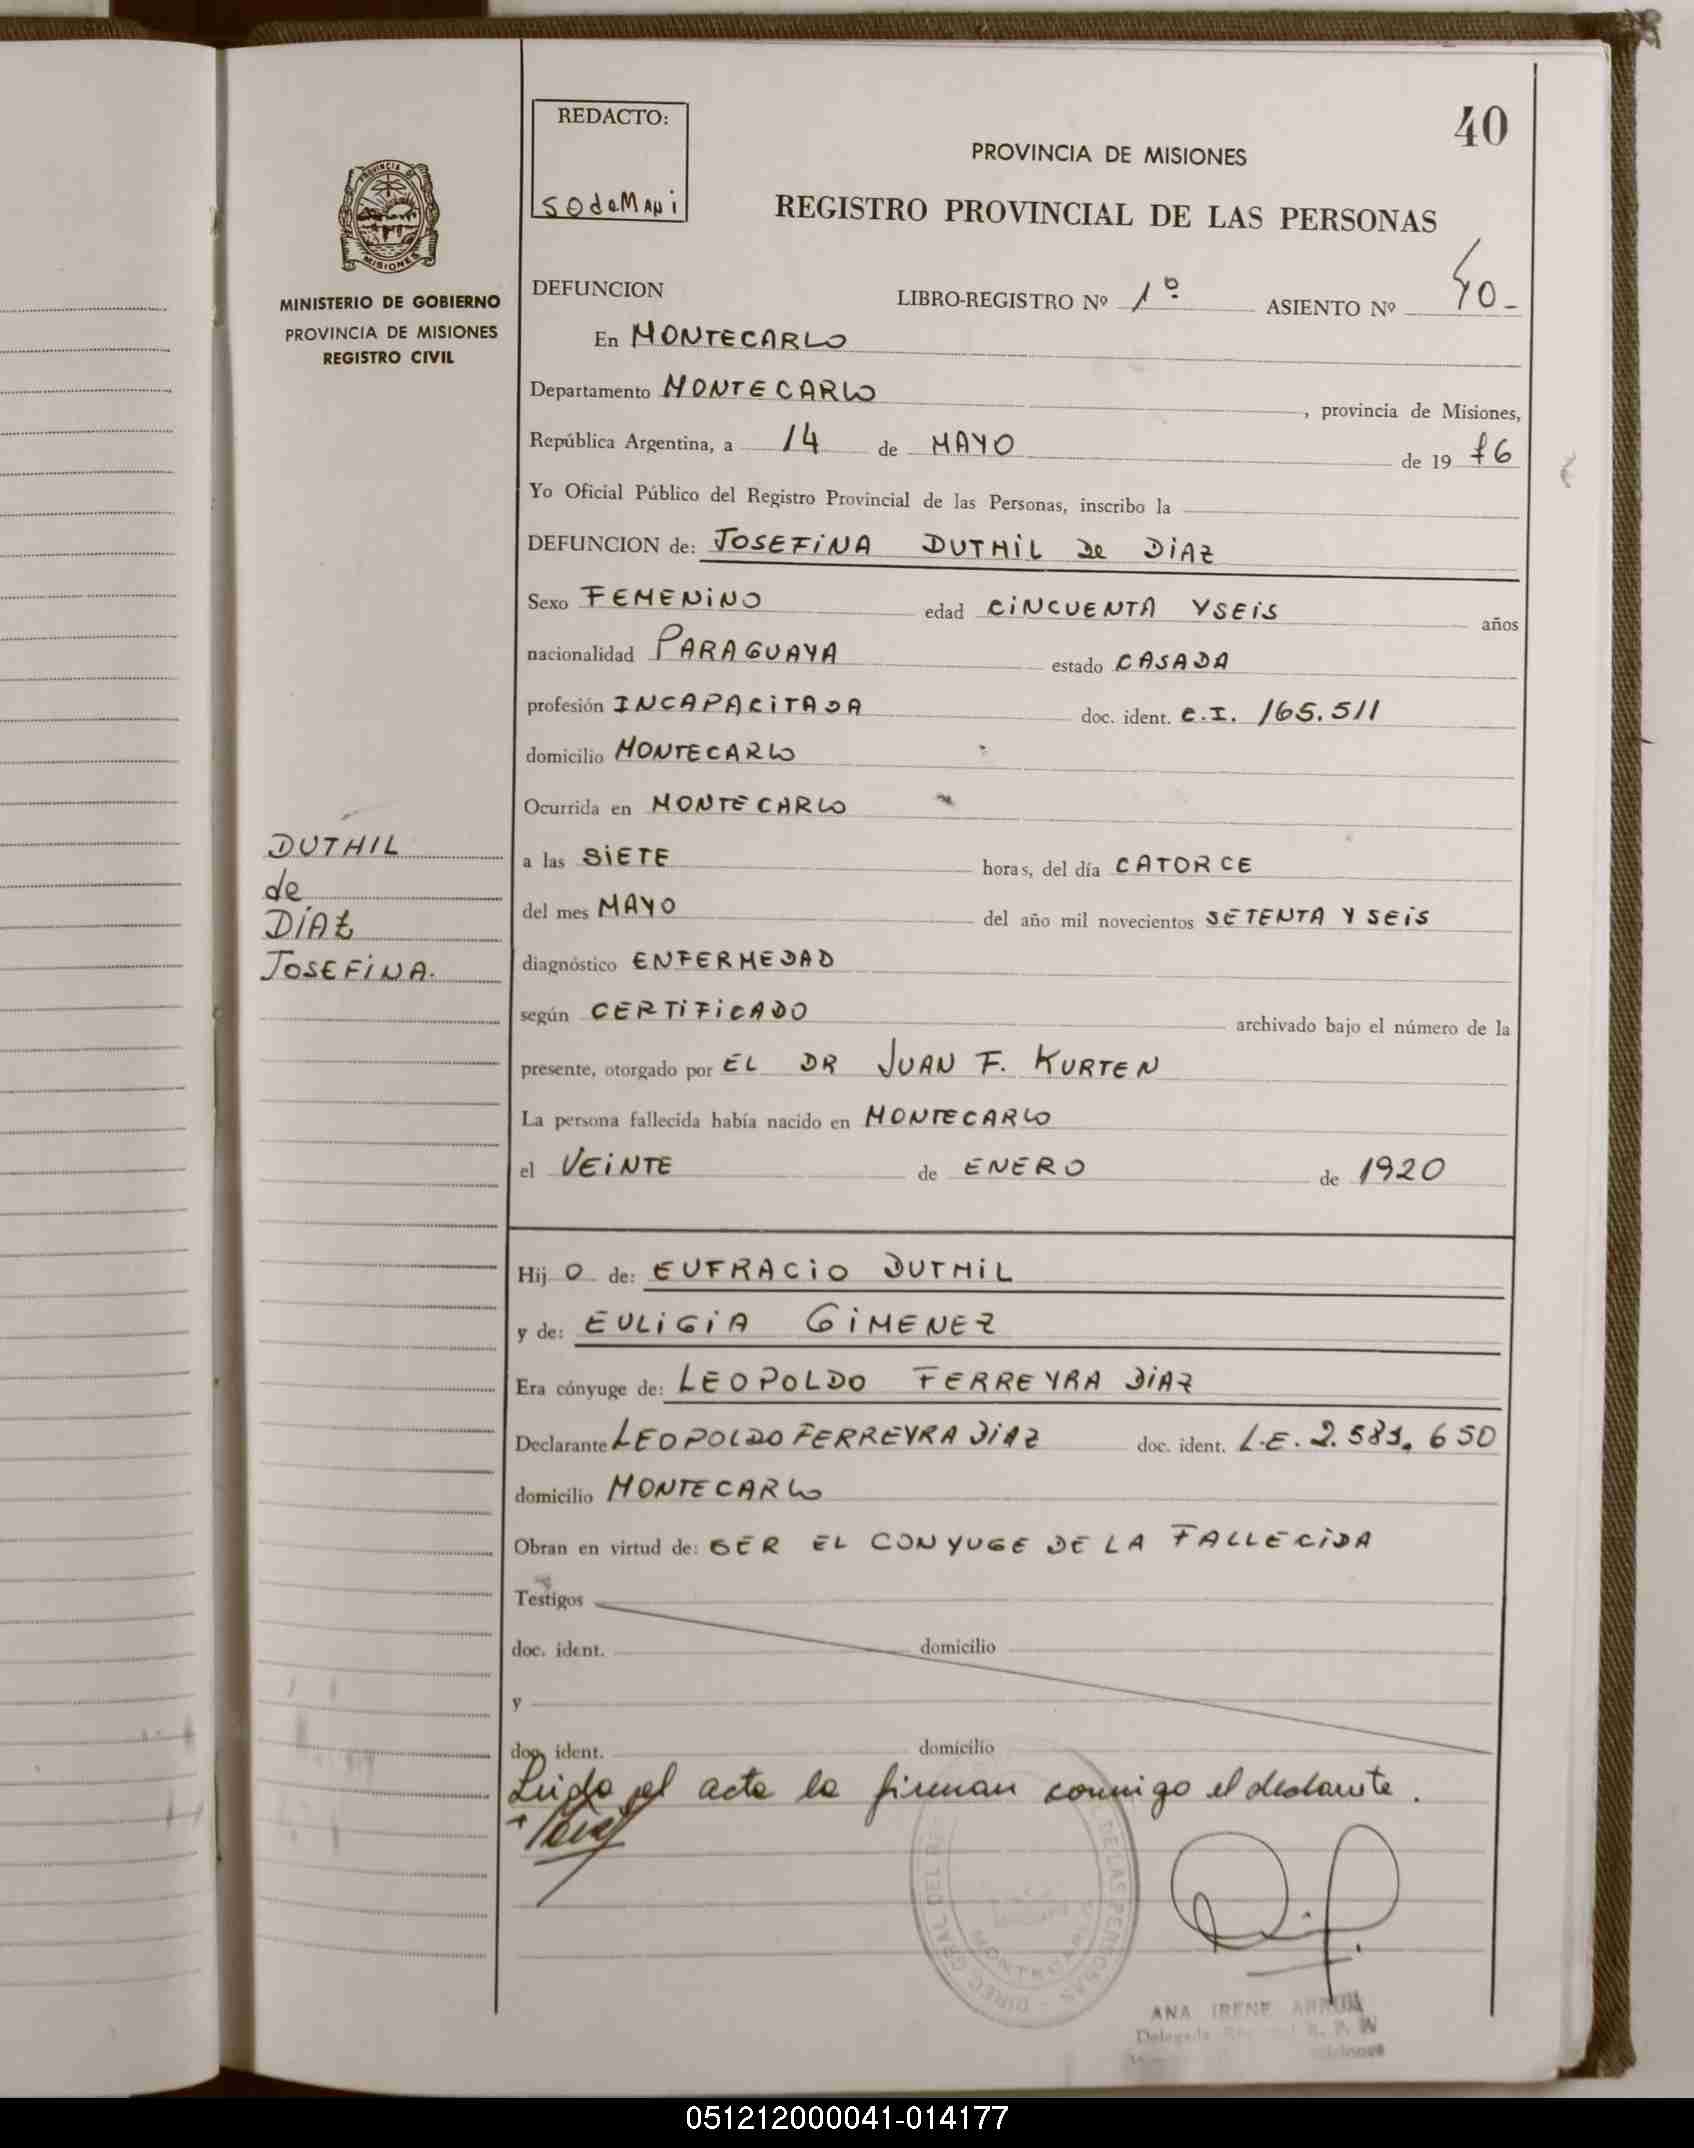 REDACTO:
SOdeMANi
40
PROVINCIA DE MISIONES
REGISTRO PROVINCIAL DE LAS PERSONAS
PROVINCIA DE
MISIONES
MINISTERIO DE GOBIERNO
PROVINCIA DE MISIONES
REGISTRO CIVIL
DEFUNCION LIBRO-REGISTRO Nº 1º ASIENTO Nº 40-
En MONTECARLO
Departamento MONTECARLO, provincia de Misiones,
República Argentina, a 14 de MAYO de 19 76
Yo Oficial Público del Registro Provincial de las Personas, inscribo la
DEFUNCION de: JOSEFiNA DUTHiL De DiAZ
Sexo FEMENiNO edad CiNCUENTA YSEiS años
nacionalidad PARAGUAYA estado CASADA
profesión INCAPACiTADA doc. ident. C.I. 165.511
domicilio MONTECARLO
Ocurrida en MONTECARLO
a las SiETE horas, del día CATORCE
del mes MAYO del año mil novecientos SETENTA Y SEiS
diagnóstico ENFERMEDAD
según CERTiFiCADO archivado bajo el número de la
presente, otorgado por EL DR JUAN F. KURTEN
La persona fallecida había nacido en MONTECARLO
el VEiNTE de ENERO de 1920
DUTHIL
de
DÍAZ
JOSEFiNA.
Hij O de: EUFRACiO DUTHiL
y de: EULiGiA GiMENEZ
Era cónyuge de: LEOPOLDO FERREYRA DiAZ
Declarante LEOPOLDO FERREYRA DiAZ doc. ident. L.E. 2.581.650
domicilio MONTECARLO
Obran en virtud de: SER EL CONYUGE DE LA FALLECiDA
Testigos
doc. ident. domicilio
y
doc. ident. domicilio
Leida el acta la firman conmigo el declarante.
DIREC. GRAL. DEL DE LAS PERSONAS
MONTECARLO
ANA IRENE
Delegada
051212000041-014177